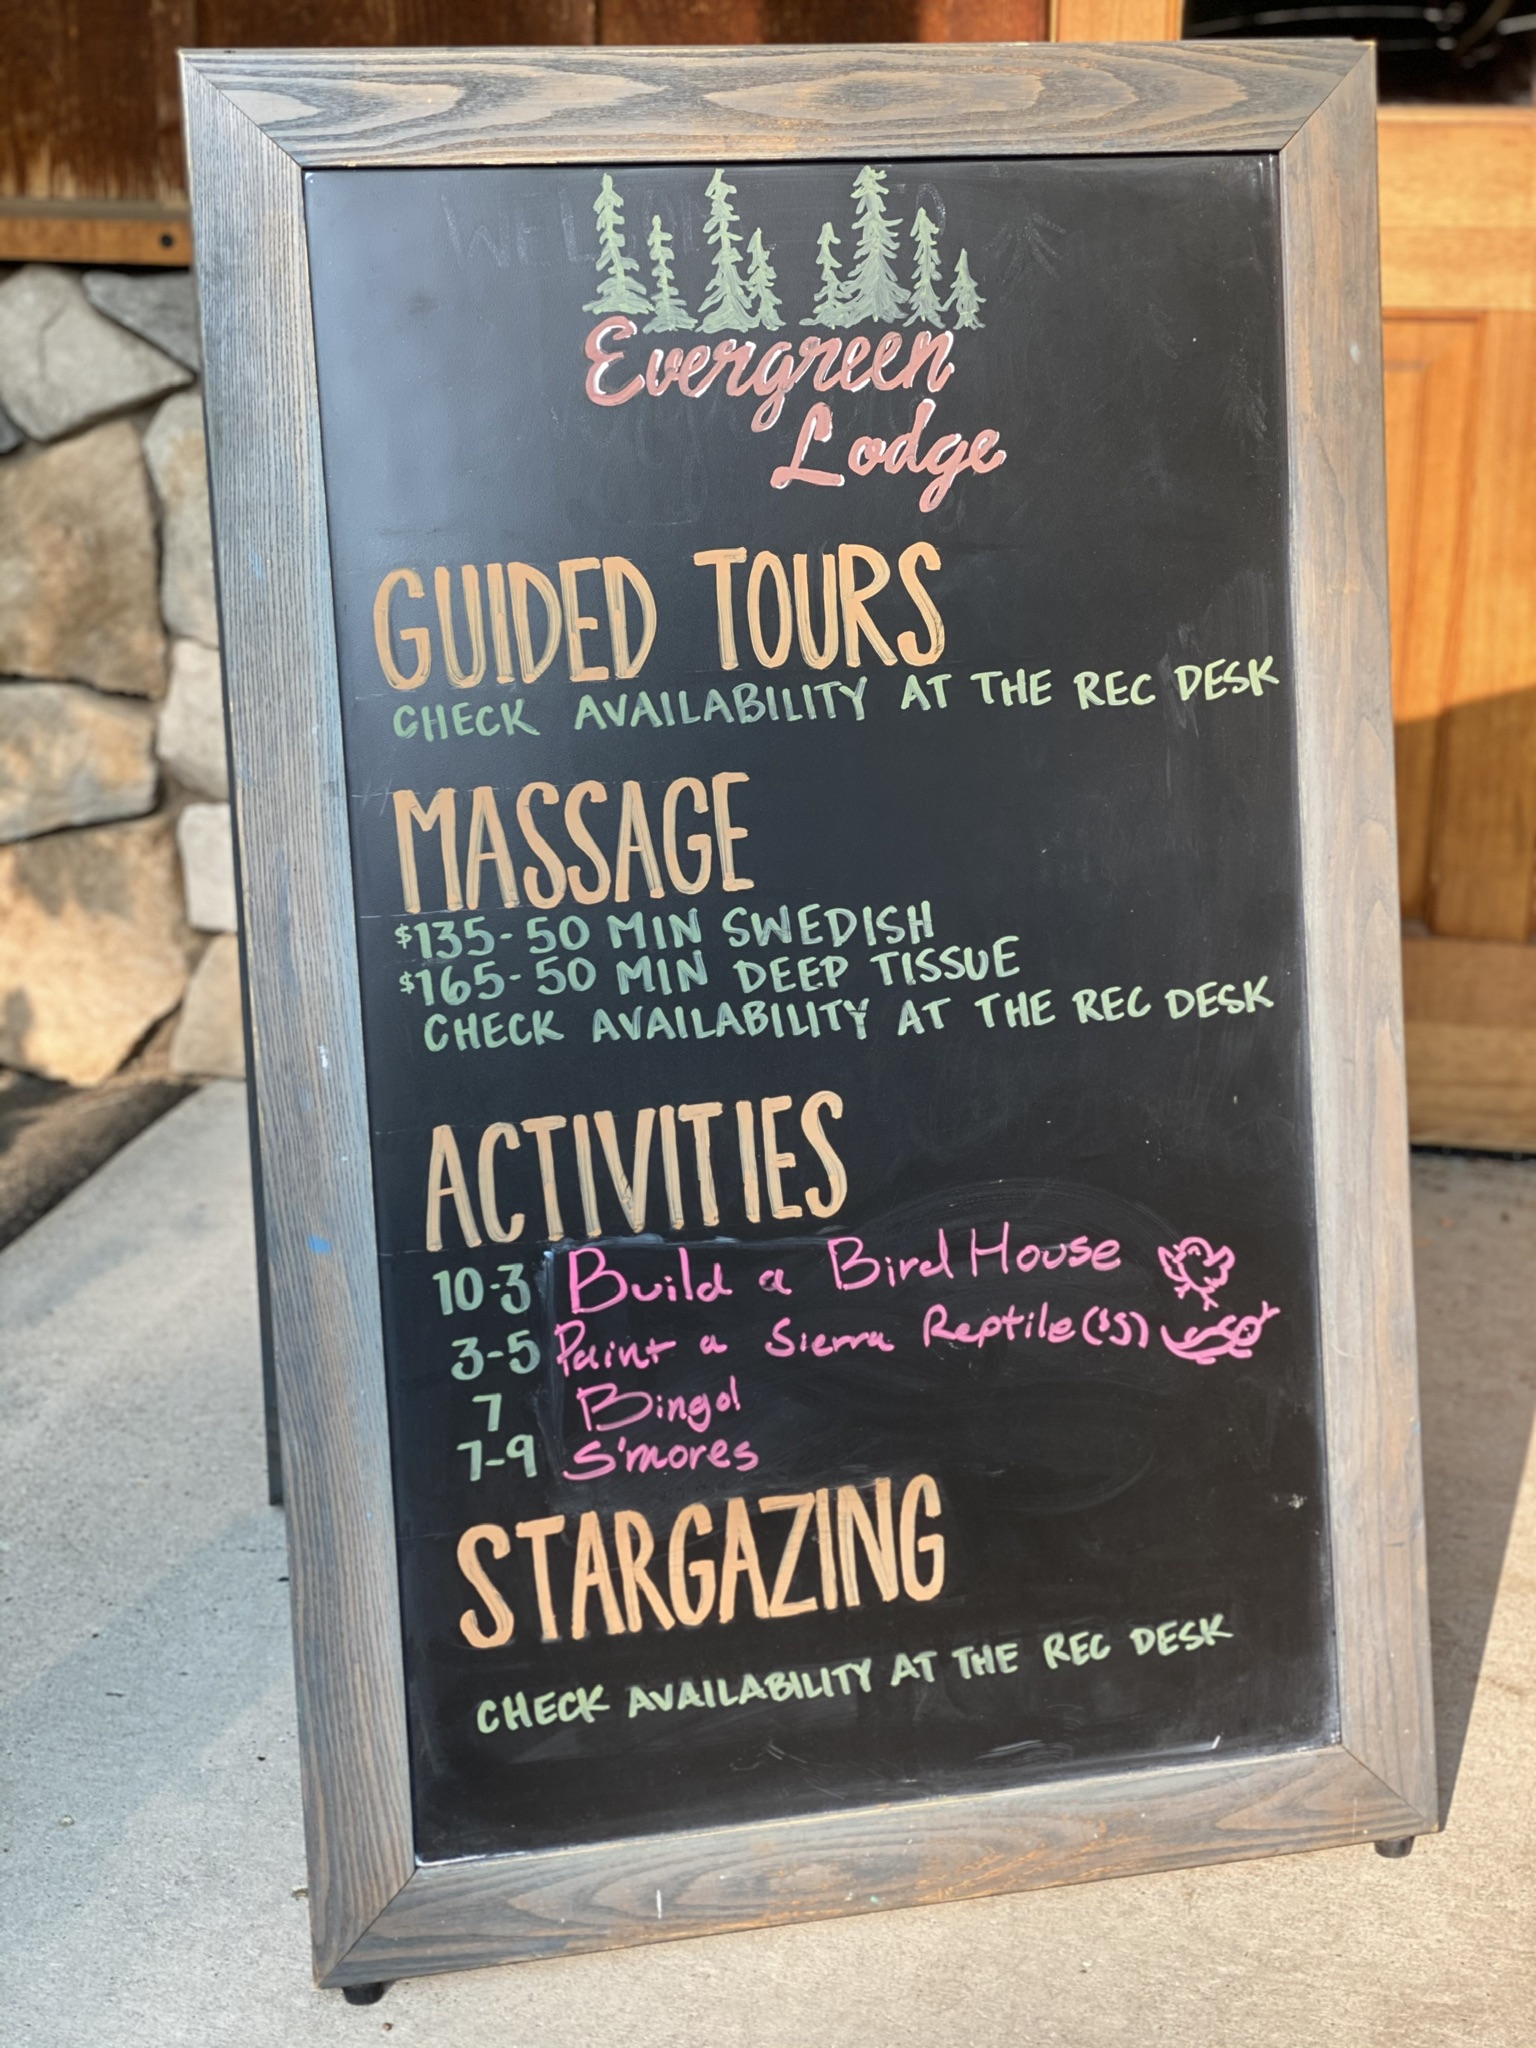 Evergreen
Lodge
GUIDED TOURS
CHECK AVAILABILITY AT THE REC DESK
MASSAGE
$135-50 MIN SWEDISH
$165-50 MIN DEEP TISSUE
CHECK AVAILABILITY AT THE REC DESK
ACTIVITIES
10-3 Build a Bird House
3-5 Paint a Sierra Reptile($5)
7 Bingo!
7-9 S'mores
STARGAZING
CHECK AVAILABILITY AT THE REC DESK